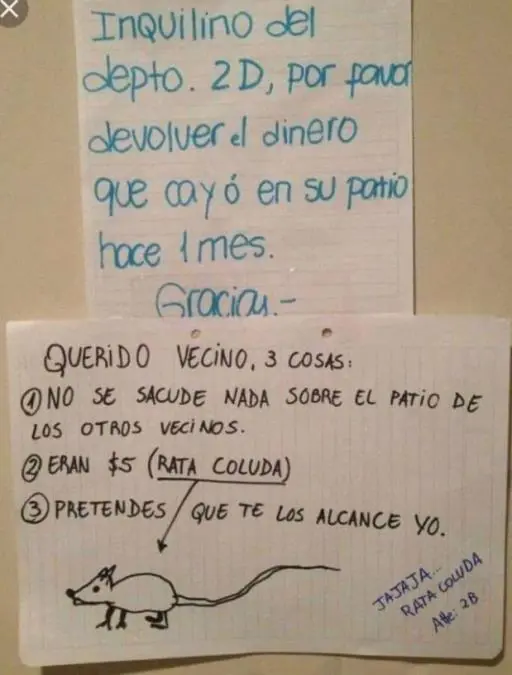 Inquilino del
depto. 2D, por favor
devolver el dinero
que cayó en su patio
hace 1 mes.
Gracias.-
QUERIDO VECINO, 3 COSAS:
① NO SE SACUDE NADA SOBRE EL PATIO DE
LOS OTROS VECINOS.
② ERAN $5 (RATA COLUDA)
③ PRETENDES QUE TE LOS ALCANCE YO.
JAJAJA...
RATA COLUDA
Atte: 2B